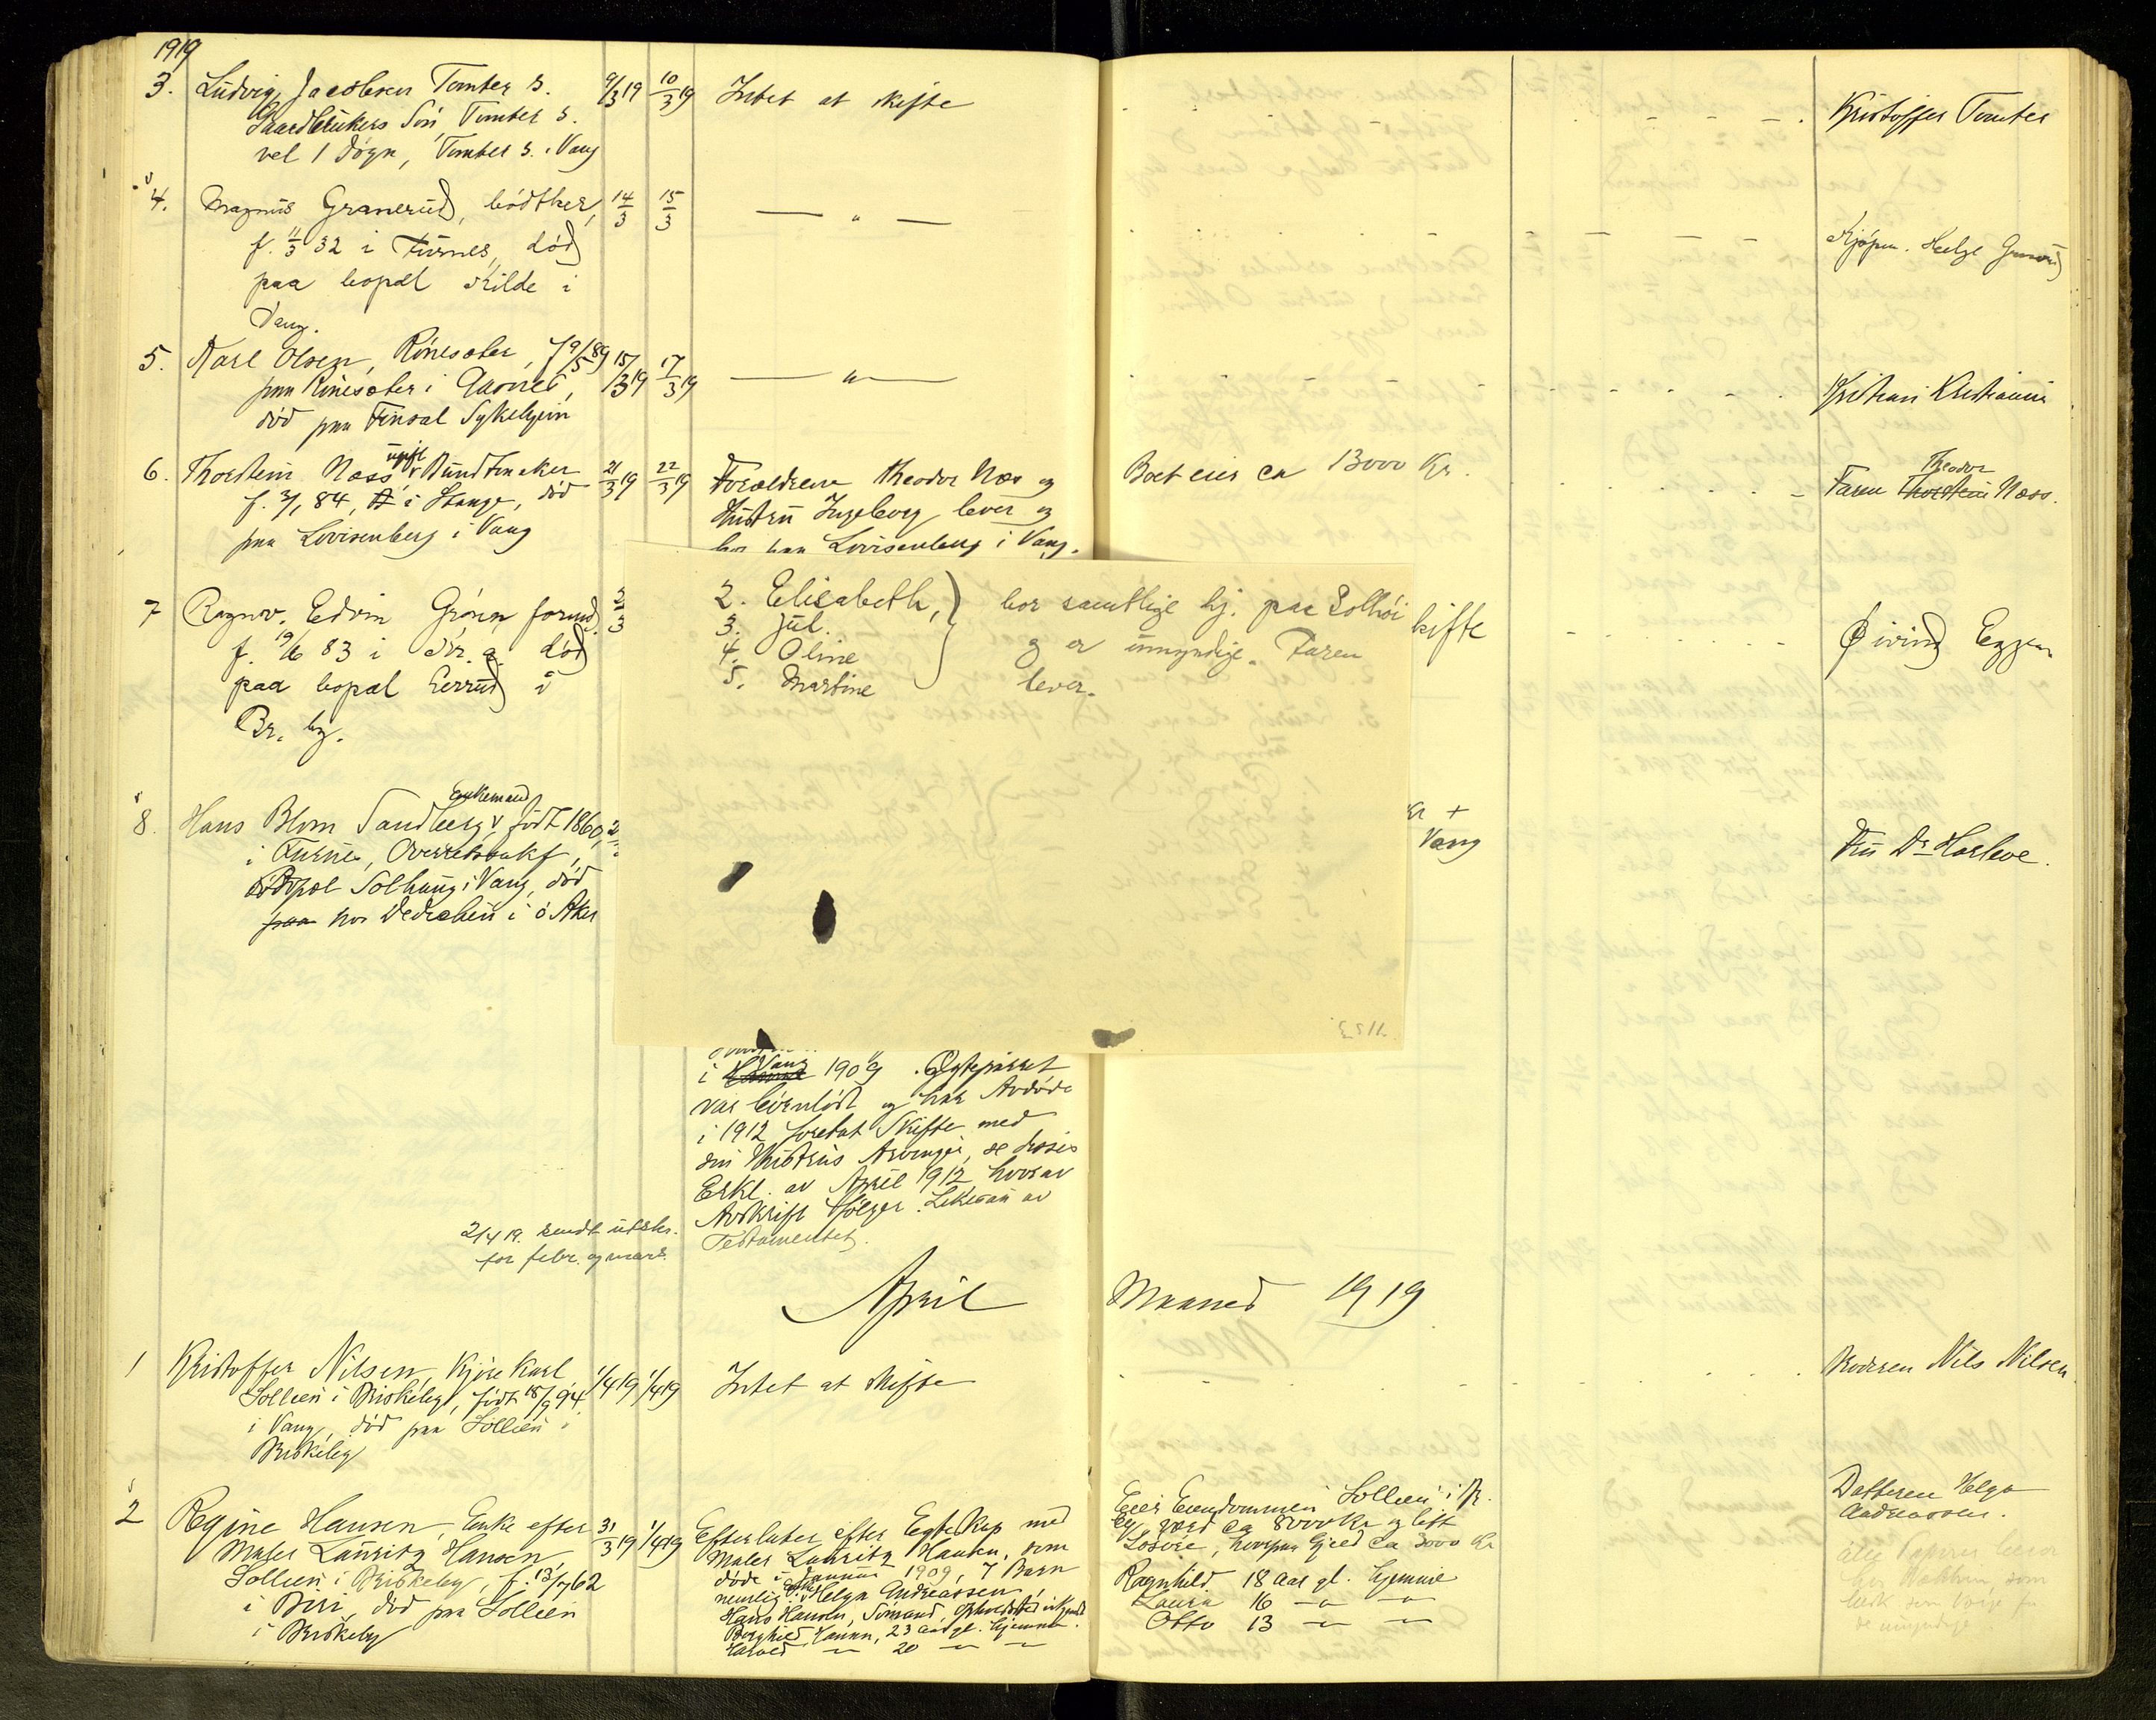 1919
3. Ludvig Jacobsen Tomter s. 9/3 19 10/3 19 Intet at skifte Kristoffer Tomter
Gaardbrukers Søn, Tomter s.
vel 1 Døgn, Tomter s. i Vang
4. Magnus Granerud, bødtker, 14/3 15/3 — " — Kjøpm. Helge Granerud
f. 11/3 32 i Furnes, død
paa bopæl Kilde i
Vang.
5. Karl Olsen, f 9/5 89 15/3 19 17/3 19 — " — Kristian Kristiansen
paa i
død paa Finsal Sykehjem
6. Thorstein Næss, ugift Bundtmaker 21/3 19 22/3 19 Forældrene Theodor Næss og Boet eier ca 13000 Kr. Theodor
f. 3/1 84, i Stange, død Hustru Ingeborg lever og Faren Thorstein Næss.
paa Lovisenberg i Vang bor paa Lovisenberg i Vang.
7 Ragnv. Edvin Grønn, formd. kifte Øivind Eggen
f. 19/6 83 i død
paa bopæl i
Br. by.
2. Elisabeth, bor samtlige hj. paa Solhøi
3. Jul.
4. Oline og er umyndige. Faren
5. Martine lever.
8. Hans Blom Sandberg, Enkemand, født 1860, Kr + Fru Dr Harbove.
i Furnes, Overretssakf., Vang
Bopæl Solhaug i Vang, død
paa hos Dedichen i Ø Aker
i Vang 1909. Ægteparret
var barnløst og har Avdøde
i 1912 foretat Skifte med
sin Hustrus Arvinger, se deres
Erkl. av April 1912 hvorav
Avskrift følger. Likesaa av
Testamentet.
2/4 19. sendt utskr.
for febr. og mars.
April Maaned 1919
1 Kristoffer Nilsen, Kjørekarl 1/4 19 1/4 19 Intet at skifte Broderen Nils Nilsen
Sollien i Briskeby, født 18/9 94
i Vang, død paa Sollien i
Briskeby
2 Regine Hansen, Enke efter 31/3 19 1/4 19 Efterlater efter Egteskap med Eier Eiendommen Sollien i Br. Datteren Helga
Maler Lauritz Hansen, Maler Lauritz Hansen, som by, værd ca 8000 Kr og litt Andreassen.
Sollien i Briskeby, f. 13/7 62 døde i Januar 1909, 7 Barn Løsøre, hvorpaa Gjæld ca 3000 Kr
i Biri, død paa Sollien nemlig: Helga Andreassen, Ragnhild 18 Aar gl. hjemme
i Briskeby Hans Hansen, Sømand, Opholdsted ukjendt Laura 16 — " — — " —
Borghild Hansen, 23 Aar gl. hjemme. Otto 13 — " — — " —
Harald — " — 20 — " — — " —